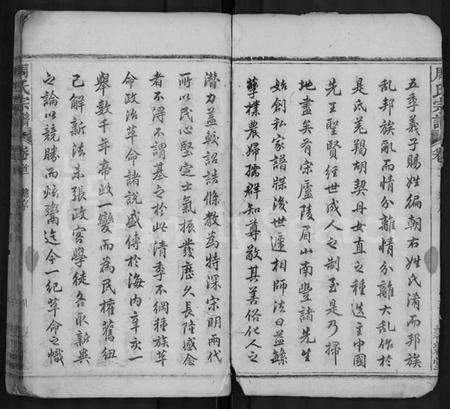 周氏宗譜
五季義子賜姓徧朝右姓氏淆而邦族
亂邦族亂而情分離情分離大亂作於
是氐羌羯胡契丹女直之種迭主中國
先王聖賢經世成人之制至是乃掃
地盡矣有宗廬陵眉山南豐諸先生
始創私家譜牒後世遞相師法日益緜
孳樸農婦孺群知尊敬其善俗化人之
潛力蓋較詔誥條教為特深宗明兩代
所以民心堅定士氣振發歷久長隆感念
者不得不謂基之於此清季不綱種族革
命政治革命諸說盛傳於海內辛亥一
舉數千年帝政一變而為民權舊紐
已解新法未張政客學徒各取新異
之論以競勝而炫鬻迄今一紀革命之幟
周氏宗譜